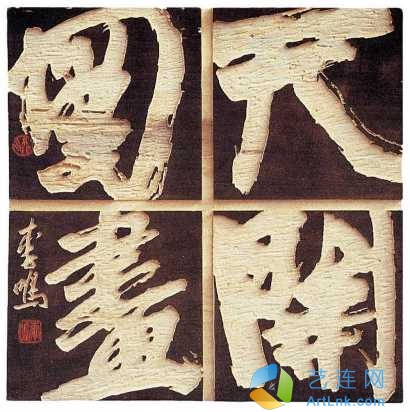 天開
圖畫
李鳴
艺连网
ArtLnk.com